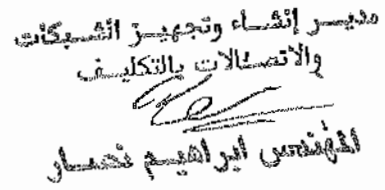 مديـر إنشـاء وتجهيـز الشـبكات
والاتصـالات بالتكليـف
المهندس ابراهيـم نصـار